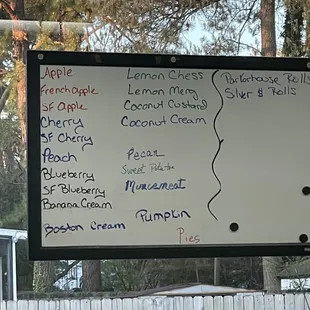 Apple
French apple
SF apple
Cherry
SF Cherry
Peach
Blueberry
SF Blueberry
Banana Cream
Boston Cream
Lemon Chess
Lemon Merng
Coconut Custard
Coconut Cream
Pecan
Sweet Potatoe
Muncemeat
Pumpkin
Pies
Parkorhouse Rolls
Silver $ Rolls